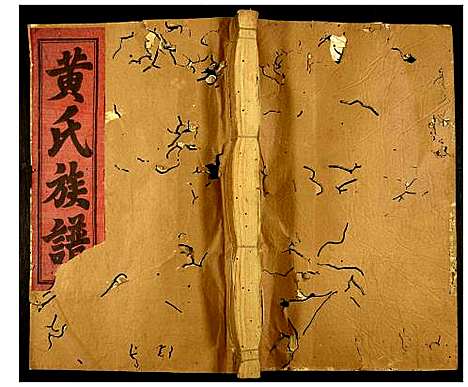 黄氏族譜